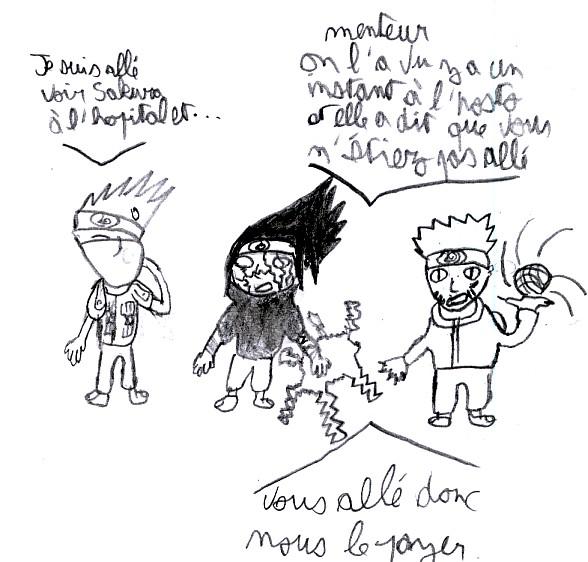 Je suis allé
voir Sakura
à l'hopital et...
menteur
on l'a vu y a un
instant à l'hosto
et elle a dit que vous
n'étiez pas allé
vous allé donc
nous le payer.